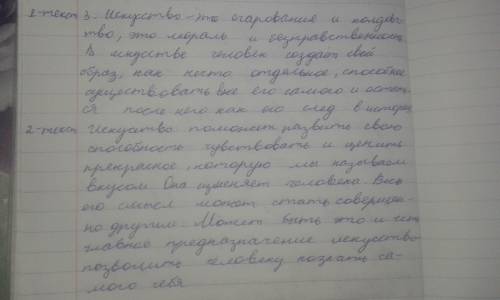 1-текст 3. Искусство-это очарование и колдовс
тво, это мораль и безнравственность
В искусстве человек создаёт свой
образ, как нечто отдельное, способное
существовать вне его самого и остать
ся после него как его след в истории
2-текст Искусство поможет развить свою
способность чувствовать и ценить
прекрасное, которую мы называем
вкусом. Она изменяет человека. Весь
его смысл может стать совершен-
но другим. Может быть это и есть
главное предназначение искусство
позволить человеку познать са-
мого себя